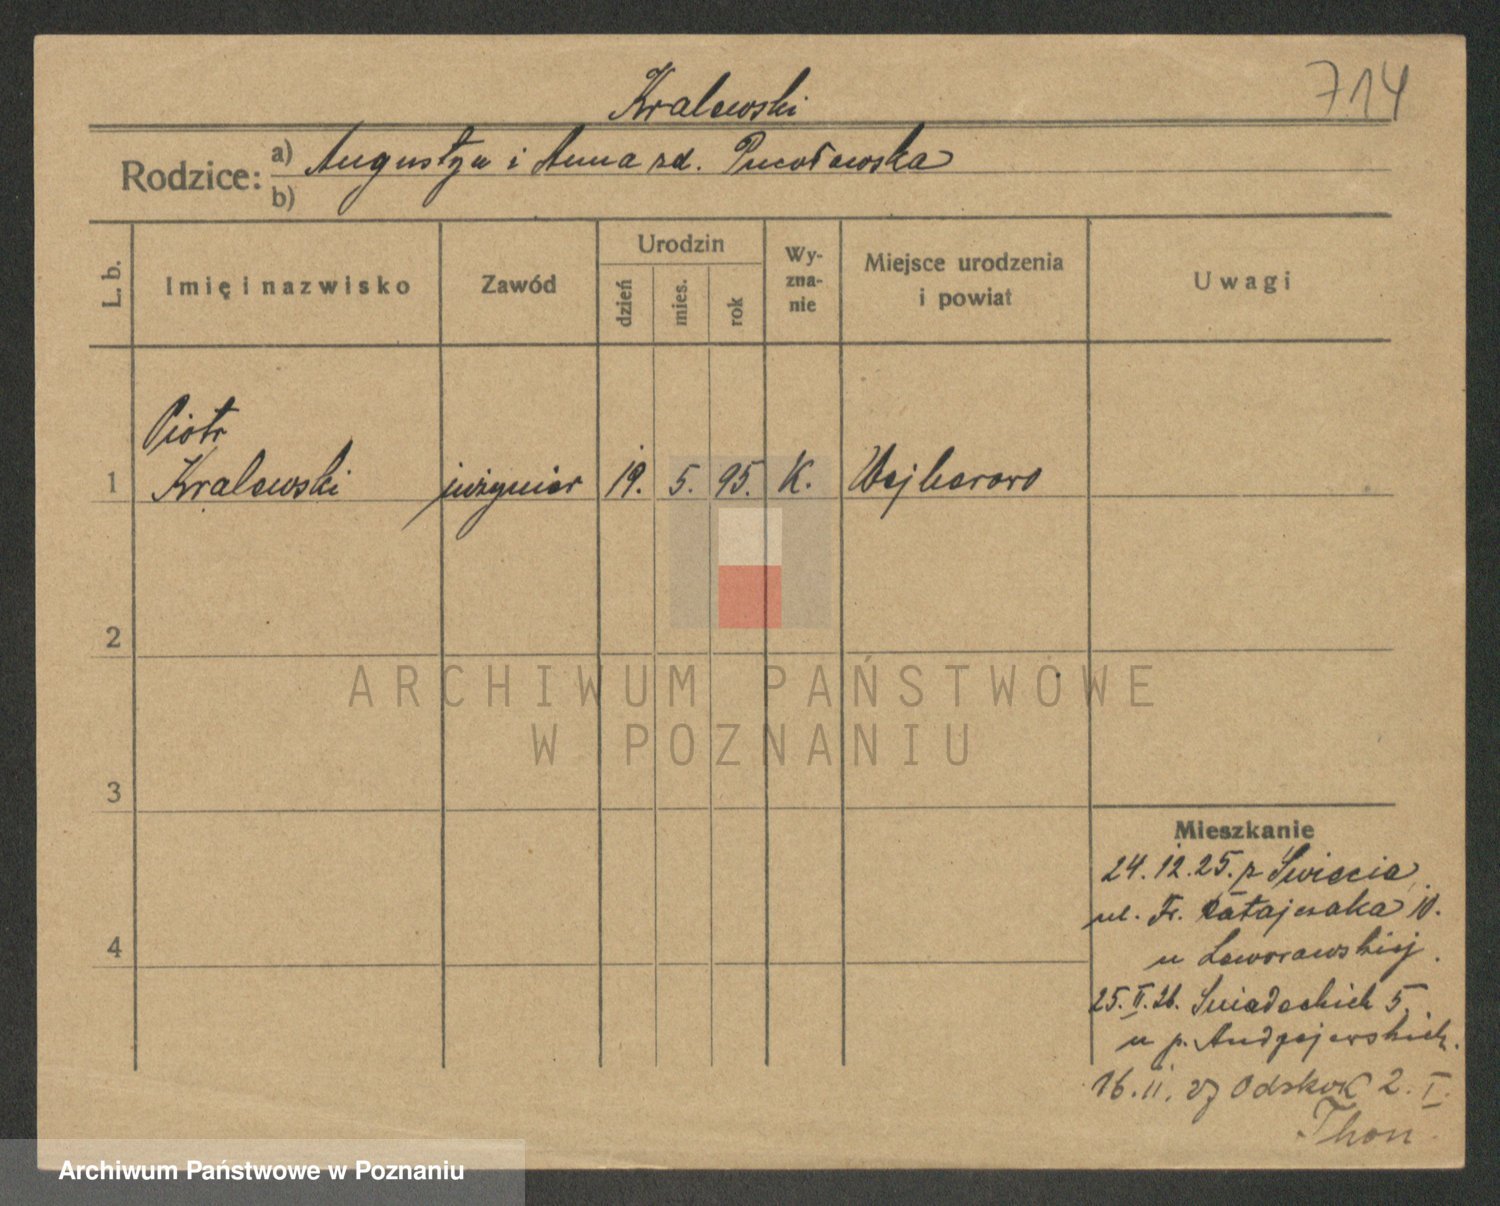 714
Kralewski
Rodzice: a) Augustyn i Anna zd.
b)
L. b. Imię i nazwisko Zawód Urodzin dzień mies. rok Wyznanie Miejsce urodzenia i powiat Uwagi
Piotr
1 Kralewski inżynier 19. 5. 95. K. Wejherowo
2
ARCHIWUM PAŃSTWOWE
W POZNANIU
3
Mieszkanie
24.12.25. z Świecia
ul. Fr. Ratajczaka 10.
u
4
25.II.26. Śniadeckich 5
u p. Andrzejewskich.
16.11. Odskok 2. I.
Thon.
Archiwum Państwowe w Poznaniu